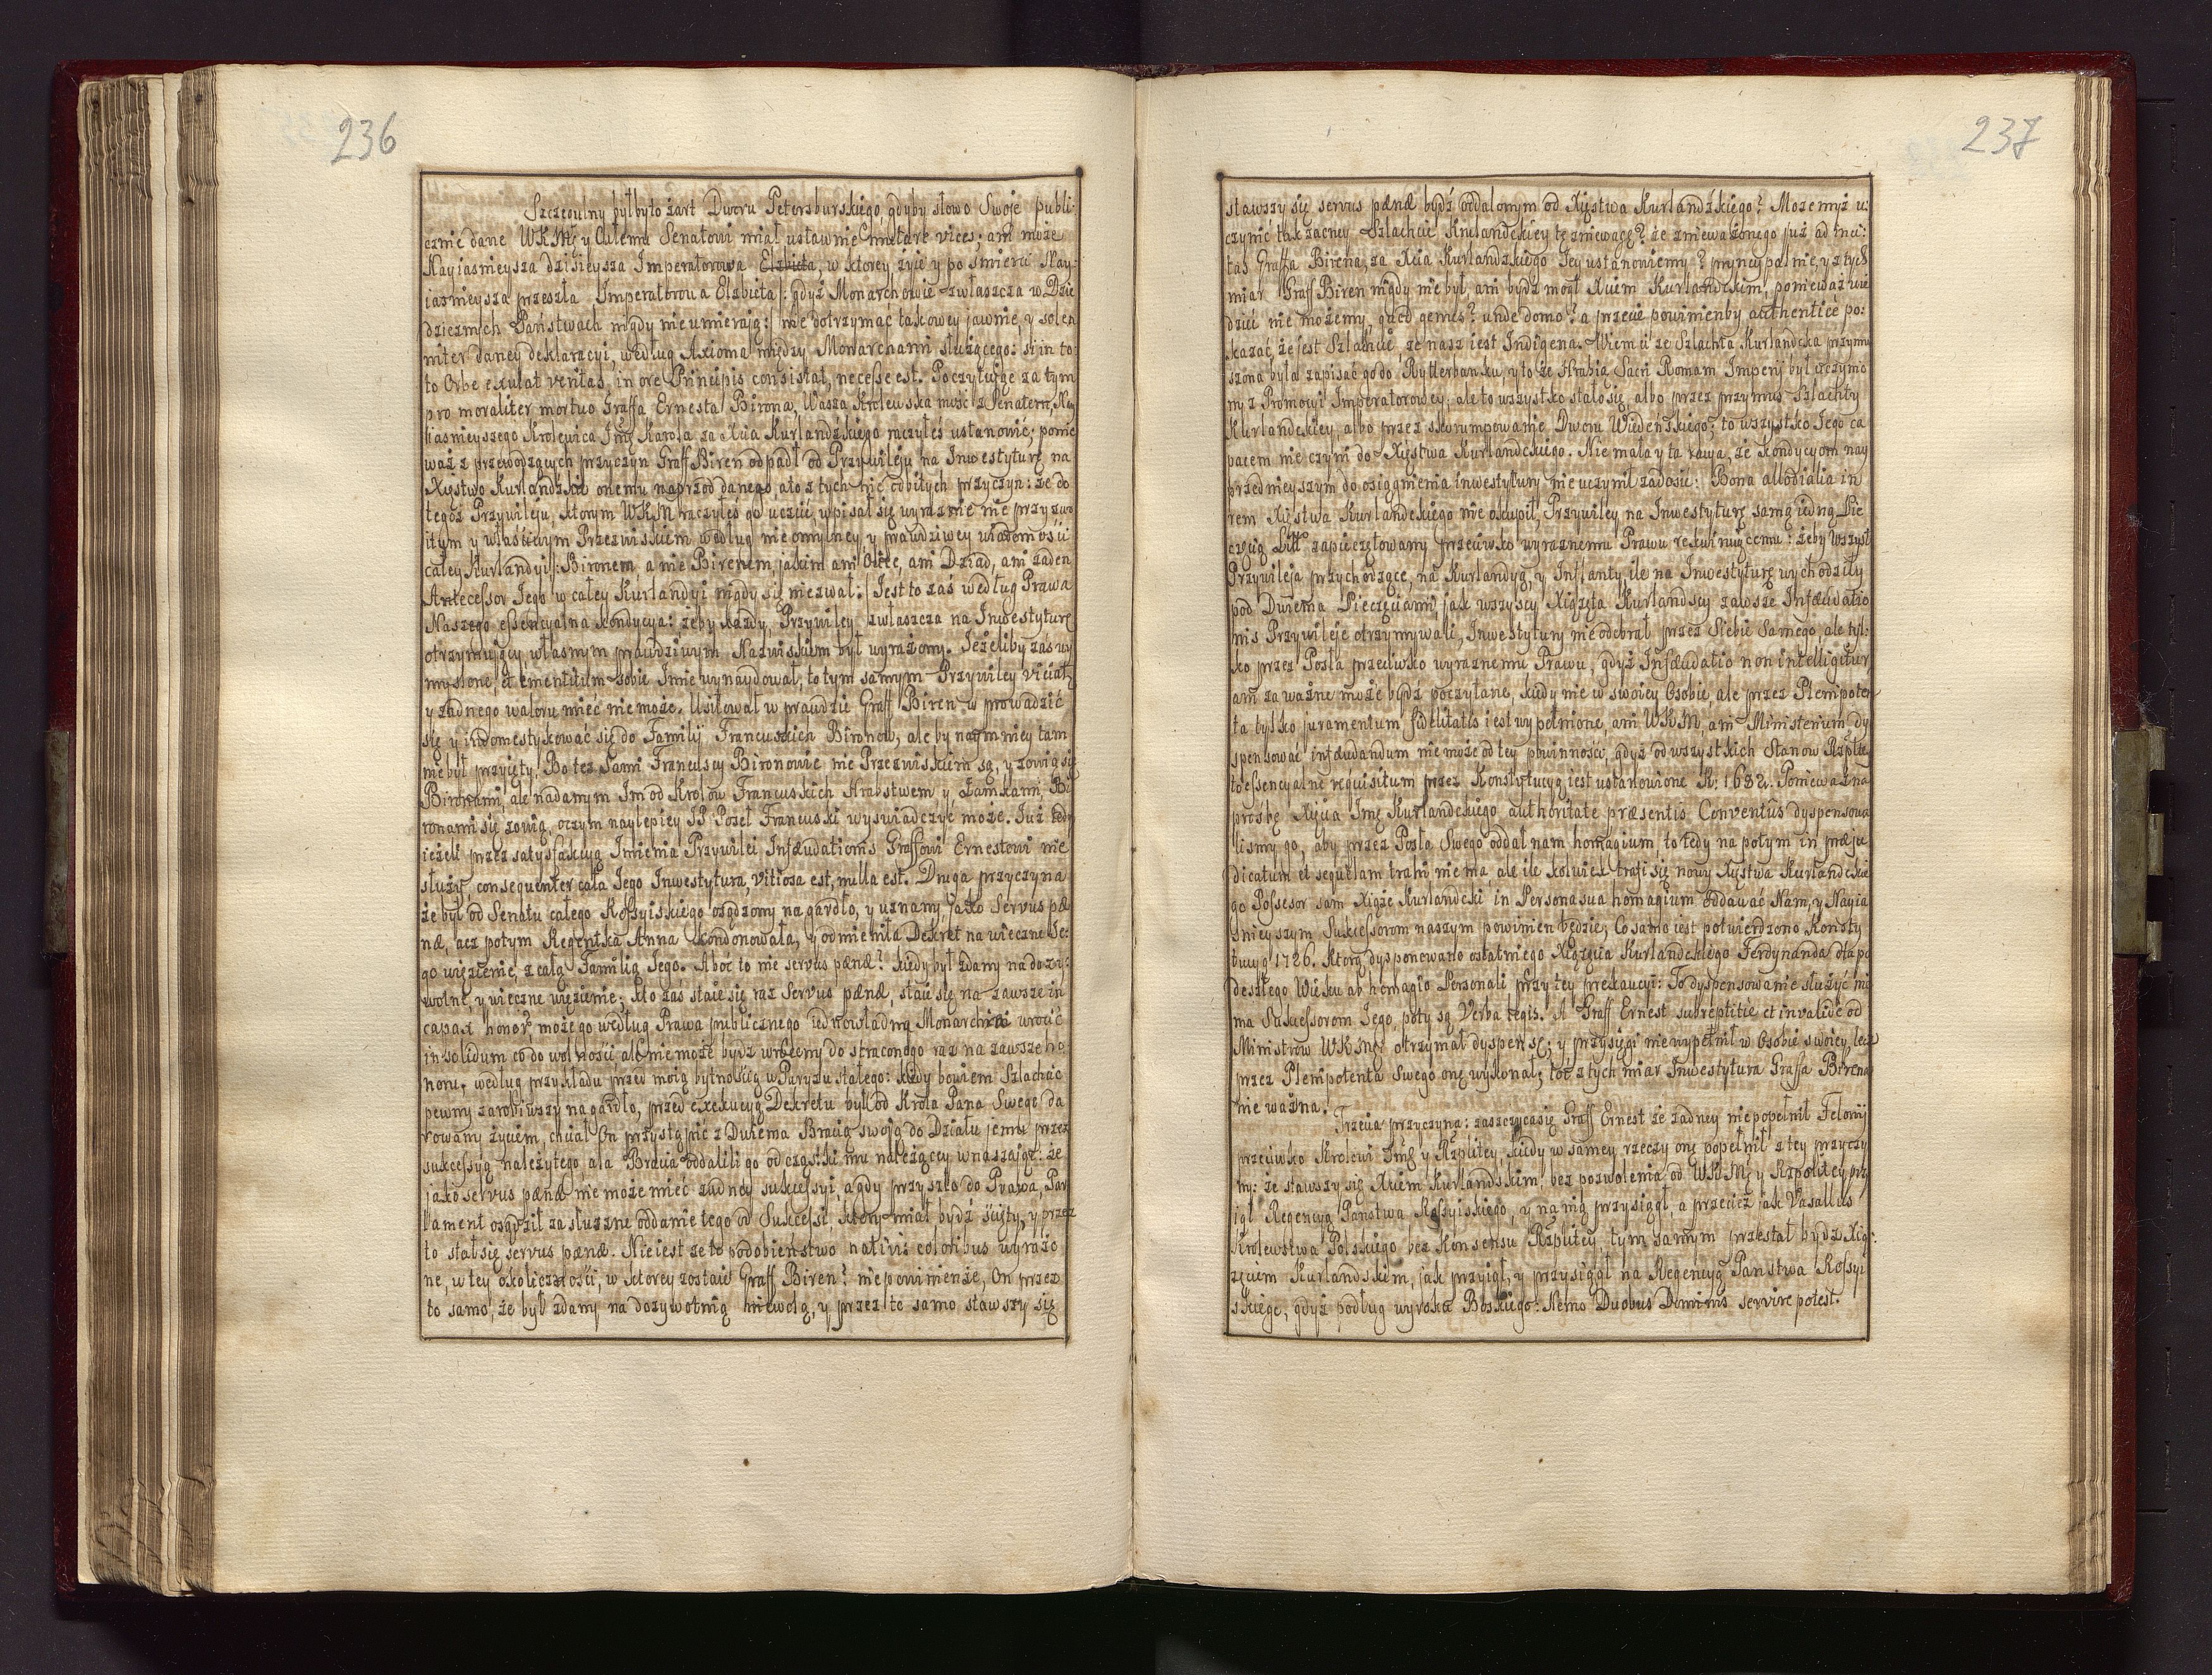 236
Szczegulny byłbyto żart Dworu Petersburskiego gdyby słowo Swoje publi-
cznie dane WKMći y Całemu Senatowi miał ustawnie mutare vices; ani może
Nayiasnieysza dzisieysza Imperatorowa Elzbieta, w ktorey żyie y po smierci Nay-
iasnieysza przeszła Imperatorowa Elzbieta /: gdyż Monarchowie zwłaszcza w Dzie
dzicznych Państwach nigdy nie umierają :/ nie dotrzymać takowey jawnie, y solen
niter daney deklaracyi, według Axioma między Monarchami służącego: si in to-
to Orbe exulat veritas, in ore Principis consistat, necesse est. Poczytuiąc za tym
pro moraliter mortuo Graffa Ernesta Birona, Wasza Krolewska mość z Senatem, Nay
iasnieyszego Krolewica Jmć Karola za Xcia Kurlandzkiego raczyłeś ustanowić; ponie
waż z przewodzących przyczyn Graff Biren odpadł od Przywileju na Inwestyturę na
Xięstwo Kurlandzkie onemu naprzod danego, a to z tych nie odbitych przyczyn: że do
tegoż Przywileju, ktorym WKM raczyłeś go uczcić, wpisał się wyraznie nie przyzwo
itym y właściwym Przezwiskiem według nieomylney y prawdziwey wiadomości
całey Kurlandyi /: Bironem, a nie Birenem, jakim ani Ociec, ani Dziad, ani żaden
Antecessor Jego w całey Kurlandyi nigdy się niezwał. / Jest to zaś według Prawa
Naszego essencyalna kondycya: żeby każdy Przywiley zwłaszcza na Inwestyturę
otrzymujący własnym prawdziwym Nazwiskiem był wyrażony. Jeżeliby zaś wy
myslone, et ementitum sobie Imie wynaydował, to tym samym Przywiley viciat,
y żadnego waloru mieć nie może. Usiłował w prawdzie Graff Biren w prowadzić
się y indomestykować się do Familij Francuskich Bironow, ale by naymniey tam
nie był przyięty. Bo też Sami Francuscy Bironowie nie Przezwiskiem są, y zowią się
Bironami, ale nadanym Im od Krolow Francuskich Hrabstwem y Zamkami, Bi
ronami się zowią, oczym naylepiey JP Poseł Francuski wyswiadczyć może. Już tedy
ieżeli przez satysfakcyą Imienia Przywilei Infæudationis Graffowi Ernestowi nie
służy, consequenter cała Jego Inwestytura vitiosa est, nulla est. Druga przyczyna
że był od Senatu całego Rossyiskiego osądzony na gardło, y uznany, jako Servus pæ
næ, acz potym Regentka Anna kondonowała, y odmieniła Dekret na wieczne Je-
go więzienie, z całą Familią Jego. Aboć to nie servus pænæ? kiedy był zdany na dozy-
wotne, y wieczne więzienie; kto zaś staie się raz Servus pænæ, staie się na zawsze in
capax honoris może go według Prawa publicznego iednowładny Monarcha wrocić
in solidum co do wolności, ale nie może bydz wrocony do straconego raz na zawsze ho
noru, według przykładu przed moią bytnością w Paryżu stałego: kiedy bowiem Szlachcic
pewny zarobiwszy na gardło, przed exekucyą Dekretu był od Krola Pana Swego da
rowany życiem, chciał On przystąpić z Dwiema Bracią swoią do Działu jemu przez
sukcessyą należytego, ale Bracia oddalili go od cząstki mu należącey wnaszając: że
jako servus pænæ nie może mieć żadney sukcessyi, a gdy przyszło do Prawa, Par
lament osądził za słuszne oddanie tego od Sukcessi, ktory miał bydź ścięty, y przez
to stał się servus pænæ. Nie iest że to podobieństwo nativis coloribus wyrażo
ne, w tey okoliczności, w ktorey zostaie Graff Biren? nie powinienże, On przez
to samo, że był zdany na dozywotnią niewolą, y przez to samo stawszy się
237
stawszy się servus pænæ bydź oddalonym od Xięstwa Kurlandzkiego? Możemyż u-
czynić tak zacney Szlachcie Kurlandckiey tę zniewagę? że zniewazonego już ad inci-
tas Graffa Birena, za Xcia Kurlandzkiego Jey ustanowiemy? pryncypalnie, y z tych
miar Graff Biren nigdy nie był, ani bydź mogł Xciem Kurlandckim, ponieważ wie
dzieć nie możemy, quod genus? unde domo? a przecie powinienby authenticè po-
kazać, że jest Szlachcic, że nasz iest Indigena. Wiem ci że Szlachta Kurlandcka przymu
szona była zapisać go do Rytterbanku, y to że Hrabią Sacri Romani Imperij był uczynio
ny z Promocyi Imperatorowey; ale to wszystko stało się, albo przez przymus Szlachty
Kurlandckiey, albo przez skorumpowanie Dworu Wiedeńskiego; to wszystko Jego ca
pacem nie czyni do Xięstwa Kurlandckiego. Nie mała y ta racya, że kondycyom nay
przednieyszym do osiągnienia inwestytury nie uczynił zadosić: Bona allodialia in
rem Xięstwa Kurlandckiego nie okupił, Przywiley na Inwestyturę samą iedną Pie
częcią Litt: zapieczętowany przeciwko wyraznemu Prawu rekwiruiącemu: żeby wszyst
Przywileja przychodzące, na Kurlandyą, y Inflanty, ile na Inwestyturę wychodziły
pod Dwiema Pieczęciami, jak wszyscy Xiążęta Kurlandscy zawsze Infæudatio
nis Przywileje otrzymywali, Inwestytury nie odebrał przez Siebie Samego, ale tyl-
ko przez Posła przeciwko wyraznemu Prawu, gdyż Infæudatio non intelligitur
ani za ważne może bydź poczytane, kiedy nie w swoiey Osobie, ale przez Plenipoten
ta tylko juramentum fidelitatis iest wypełnione, ani WKM, ani Ministerium dy
spensować infæudandum nie może od tey powinności, gdyż od wszystkich Stanow Rzpltey
to essencyalne requisitum przez Konstytucyą iest ustanowione R: 1632. Poniewaz na
prośbę Xięcia Jmć Kurlandckiego authoritate præsentis Conventus dyspensowa
lismy go, aby przez Posła Swego oddał nam homagium, to tedy na potym in præju
dicatum et sequelam trahi nie ma, ale ile kolwiek trafi się nowy Xięstwa Kurlandckie
go Possesor sam Xiąże Kurlandcki in Persona sua homagium oddawać Nam, y Nayia
snieyszym Sukcessorom naszym powinien będzie; Co samo iest potwierdzono Konsty
tucyą 1726. Ktorą dysponowano ostatniego Xiążęcia Kurlandckiego Ferdynanda dla po
deszłego Wieku ab homagio Personali przy tey prekaucyi: To dyspensowanie służyć nie
ma Sukcessorom Jego, poty są Verba legis. A Graff Ernest subreptitie et invalidè od
Ministrow WKMći otrzymał dyspensę; y przysięgi nie wypełnił w Osobie swoiey, lecz
przez Plenipotenta Swego onę wykonał; toć z tych miar Inwestytura Graffa Birena
nie ważna.
Trzecia przyczyna: zaszczyca się Graff Ernest że żadney nie popełnił Felonij
przeciwko Krolowi Jmć y Rzpltey, kiedy w samey rzeczy onę popełnił z tey przyczy
ny: że stawszy się Xciem Kurlandskim, bez pozwolenia od WKMći y Rzpolitey, przy
iął Regencyą Państwa Rossyiskiego, y na nią przysiągł, a przecież jak Vasallus
Krolewstwa Polskiego bez Konsensu Rzpltey tym samym przestał bydz Xią-
żęciem Kurlandskim, jak przyiął, y przysiągł na Regencyą Państwa Rossyi
skiego, gdyż podług wyroku Boskiego: Nemo Duobus Dominis servire potest.